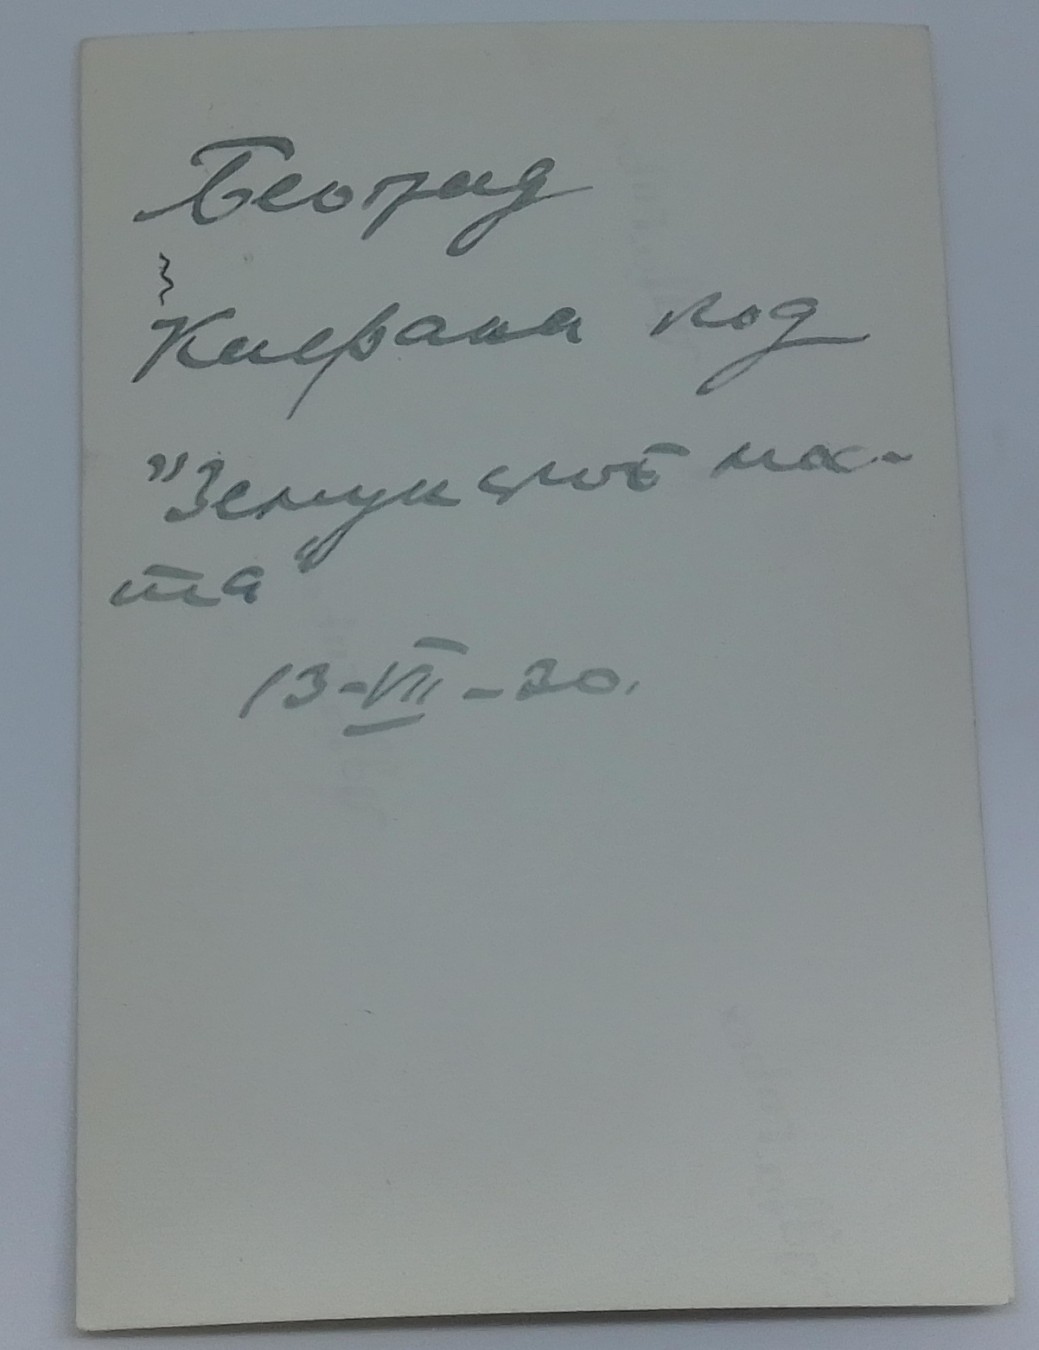 Београд
Кафана код
"Земунског ма-
та"
13-VII-30.